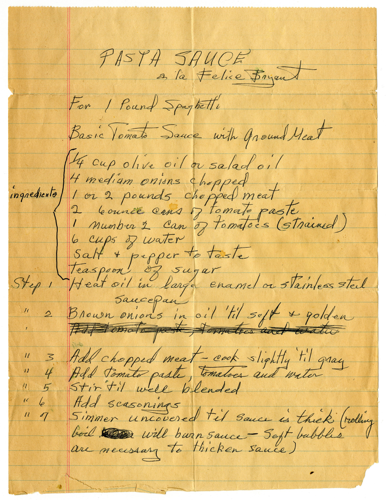 PASTA SAUCE
a la Felice Bryant
For 1 Pound Spaghetti
Basic Tomato Sauce with Ground Meat
ingredients
1/4 cup olive oil or salad oil
4 medium onions chopped
1 or 2 pounds chopped meat
2 6 ounce cans of tomato paste
1 number 2 can of tomatoes (strained)
6 cups of water
Salt & pepper to taste
teaspoon of sugar
Step 1 Heat oil in large enamel or stainless steel
saucepan
" 2 Brown onions in oil 'til soft & golden
" Add tomato paste tomatoes and water
" 3 Add chopped meat - cook slightly 'til gray
" 4 Add tomato paste, tomatoes and water
" 5 Stir 'til well blended
" 6 Add seasonings
" 7 Simmer uncovered til sauce is thick (rolling
boil will burn sauce - Soft bubbles
are necessary to thicken sauce)